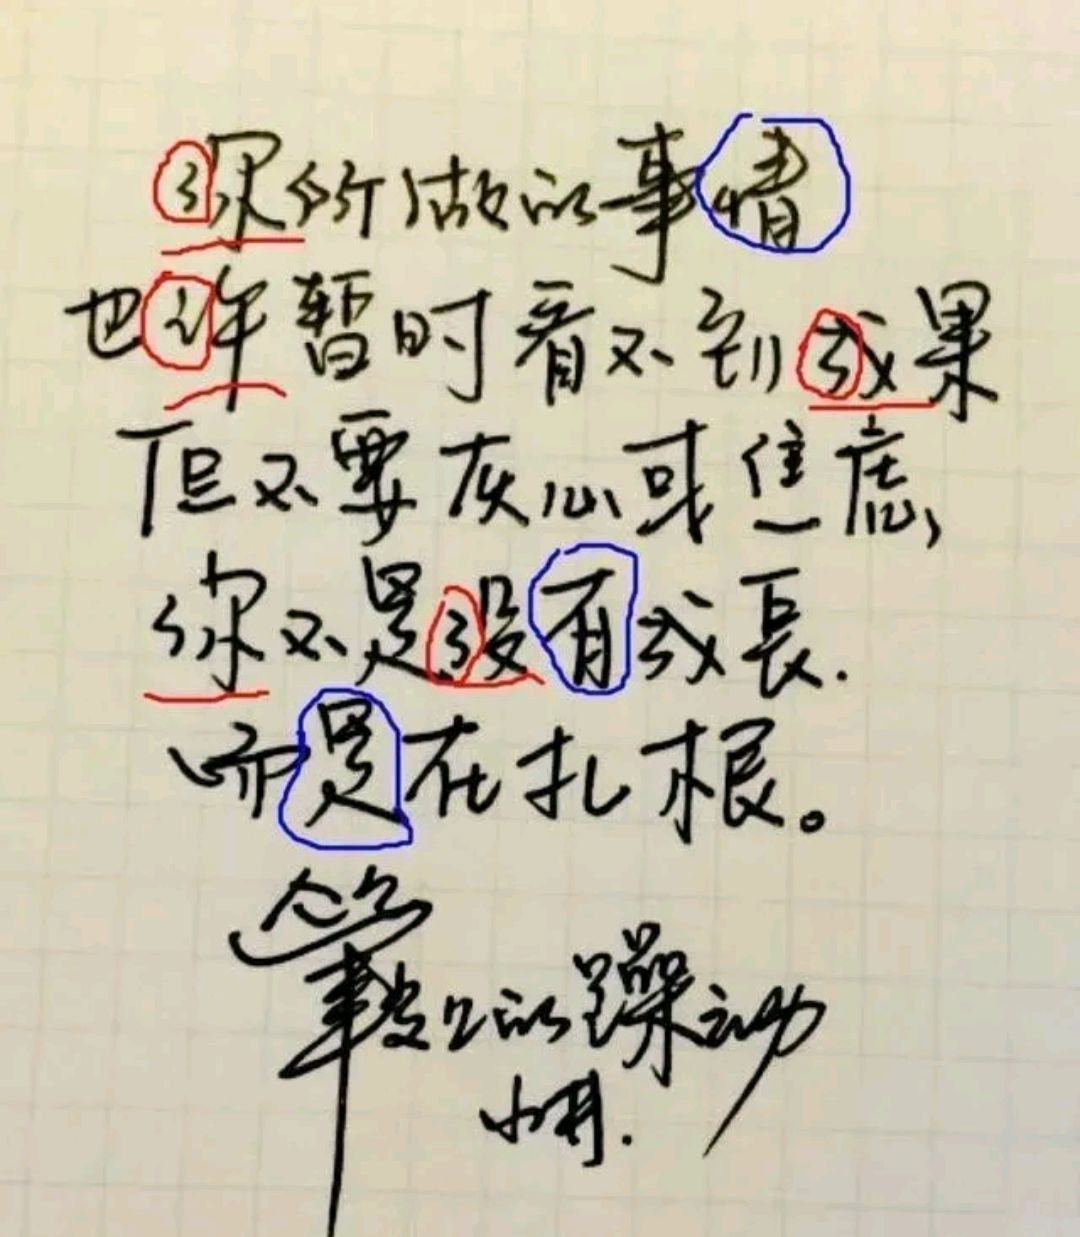 你所做的事情
也许暂时看不到成果
但不要灰心或焦虑,
你不是没有成長.
而是在扎根。
筆
的躁动